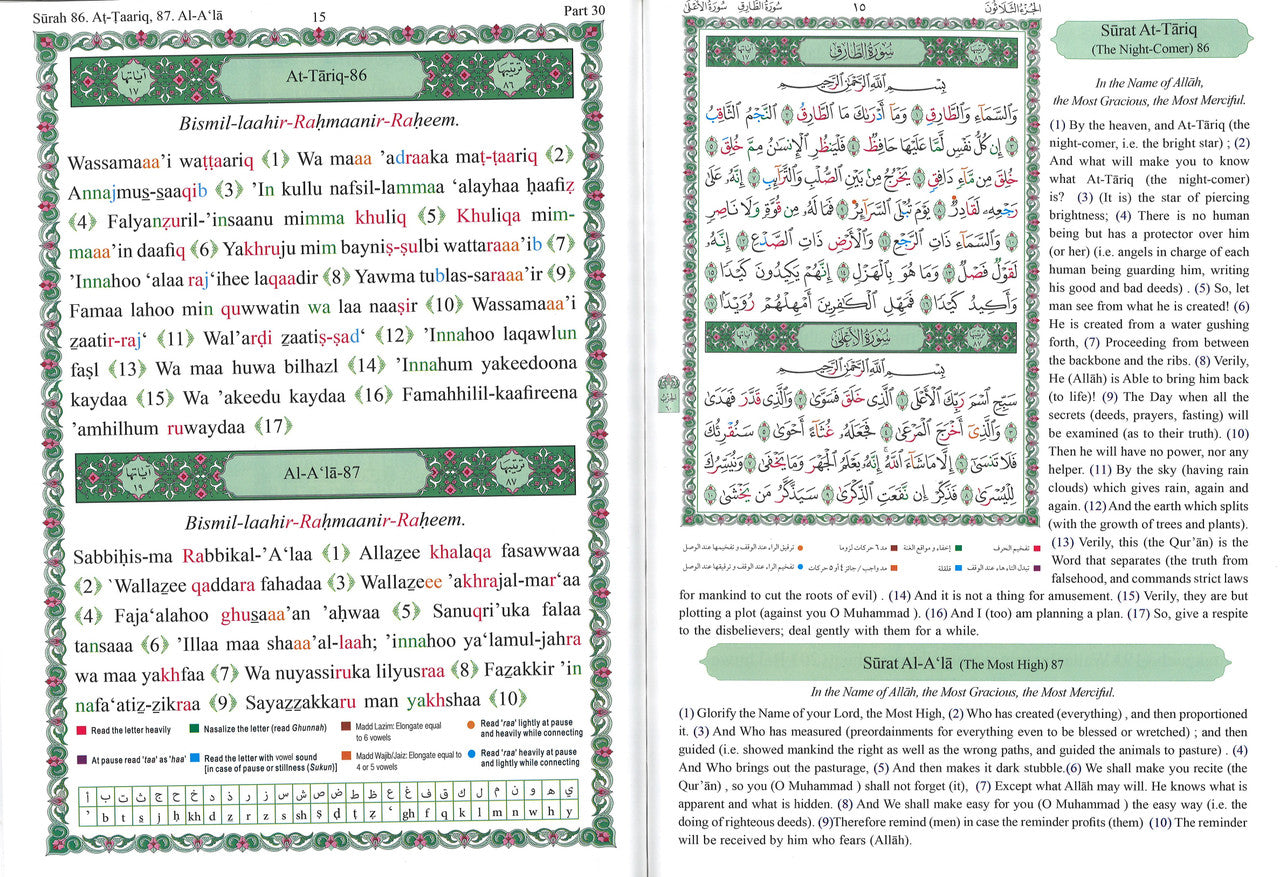 Sūrah 86. Aṭ-Ṭaariq, 87. Al-A‘lā
15
Part 30
آياتها
١٧
At-Tāriq-86
ترتيبها
٨٦
Bismil-laahir-Raḥmaanir-Raḥeem.
Wassamaaa’i waṭṭaariq ﴾1﴿ Wa maaa ’adraaka maṭ-ṭaariq ﴾2﴿
Annajmus̱-s̱aaqib ﴾3﴿ ’In kullu nafsil-lammaa ‘alayhaa ḥaafiẓ
﴾4﴿ Falyanẓuril-’insaanu mimma khuliq ﴾5﴿ Khuliqa mim-
maaa’in daafiq ﴾6﴿ Yakhruju mim bayniṣ-ṣulbi wattaraaa’ib ﴾7﴿
’Innahoo ‘alaa raj‘ihee laqaadir ﴾8﴿ Yawma tublas-saraaa’ir ﴾9﴿
Famaa lahoo min quwwatin wa laa naaṣir ﴾10﴿ Wassamaaa’i
ẕaatir-raj‘ ﴾11﴿ Wal’arḍi ẕaatiṣ-ṣad‘ ﴾12﴿ ’Innahoo laqawlun
faṣl ﴾13﴿ Wa maa huwa bilhazl ﴾14﴿ ’Innahum yakeedoona
kaydaa ﴾15﴿ Wa ’akeedu kaydaa ﴾16﴿ Famahhilil-kaafireena
’amhilhum ruwaydaa ﴾17﴿
آياتها
١٩
Al-A‘lā-87
ترتيبها
٨٧
Bismil-laahir-Raḥmaanir-Raḥeem.
Sabbiḥis-ma Rabbikal-’A‘laa ﴾1﴿ Allaẕee khalaqa fasawwaa
﴾2﴿ `Wallaẕee qaddara fahadaa ﴾3﴿ Wallaẕeee ’akhrajal-mar‘aa
﴾4﴿ Faja‘alahoo ghus̱aaa’an ’aḥwaa ﴾5﴿ Sanuqri’uka falaa
tansaaa ﴾6﴿ ’Illaa maa shaaa’al-laah; ’innahoo ya‘lamul-jahra
wa maa yakhfaa ﴾7﴿ Wa nuyassiruka lilyusraa ﴾8﴿ Faẕakkir ’in
nafa‘atiẕ-ẕikraa ﴾9﴿ Sayaẕẕakkaru man yakhshaa ﴾10﴿
Read the letter heavily
Nasalize the letter (read Ghunnah)
Madd Lazim: Elongate equal to 6 vowels
Read 'raa' lightly at pause and heavily while connecting
At pause read 'taa' as 'haa'
Read the letter with vowel sound [in case of pause or stillness (Sukun)]
Madd Wajib/Jaiz: Elongate equal to 4 or 5 vowels
Read 'raa' heavily at pause and lightly while connecting
أ ب ت ث ج ح خ د ذ ر ز س ش ص ض ط ظ ع غ ف ق ك ل م ن و ه ي
’ b t s̱ j ḥ kh d ẕ r z s sh ṣ ḍ ṭ ẓ ‘ gh f q k l m n w h y
سُورَةُ الأَعْلَى
سُورَةُ الطَّارِقِ
١٥
الجُزءُ الثَّلَاثُونَ
سُورَةُ الطَّارِقِ
بِسْمِ اللَّهِ الرَّحْمَٰنِ الرَّحِيمِ
وَالسَّمَاءِ وَالطَّارِقِ ١ وَمَا أَدْرَىٰكَ مَا الطَّارِقُ ٢ النَّجْمُ الثَّاقِبُ
٣ إِن كُلُّ نَفْسٍ لَّمَّا عَلَيْهَا حَافِظٌ ٤ فَلْيَنظُرِ الْإِنسَٰنُ مِمَّ خُلِقَ ٥
خُلِقَ مِن مَّاءٍ دَافِقٍ ٦ يَخْرُجُ مِن بَيْنِ الصُّلْبِ وَالتَّرَائِبِ ٧ إِنَّهُ عَلَىٰ
رَجْعِهِ لَقَادِرٌ ٨ يَوْمَ تُبْلَى السَّرَائِرُ ٩ فَمَا لَهُ مِن قُوَّةٍ وَلَا نَاصِرٍ
١٠ وَالسَّمَاءِ ذَاتِ الرَّجْعِ ١١ وَالْأَرْضِ ذَاتِ الصَّدْعِ ١٢ إِنَّهُ
لَقَوْلٌ فَصْلٌ ١٣ وَمَا هُوَ بِالْهَزْلِ ١٤ إِنَّهُمْ يَكِيدُونَ كَيْدًا ١٥
وَأَكِيدُ كَيْدًا ١٦ فَمَهِّلِ الْكَٰفِرِينَ أَمْهِلْهُمْ رُوَيْدًا ١٧
سُورَةُ الأَعْلَى
بِسْمِ اللَّهِ الرَّحْمَٰنِ الرَّحِيمِ
سَبِّحِ اسْمَ رَبِّكَ الْأَعْلَى ١ الَّذِي خَلَقَ فَسَوَّىٰ ٢ وَالَّذِي قَدَّرَ فَهَدَىٰ
٣ وَالَّذِي أَخْرَجَ الْمَرْعَىٰ ٤ فَجَعَلَهُ غُثَاءً أَحْوَىٰ ٥ سَنُقْرِئُكَ
فَلَا تَنسَىٰ ٦ إِلَّا مَا شَاءَ اللَّهُ إِنَّهُ يَعْلَمُ الْجَهْرَ وَمَا يَخْفَىٰ ٧ وَنُيَسِّرُكَ
لِلْيُسْرَىٰ ٨ فَذَكِّرْ إِن نَّفَعَتِ الذِّكْرَىٰ ٩ سَيَذَّكَّرُ مَن يَخْشَىٰ ١٠
تفخيم الحرف
إخفاء و مواقع الغنة
مد ٦ حركات لزوما
ترقيق الراء عند الوقف و تفخيمها عند الوصل
تبدل التاء هاء عند الوقف
قلقلة
مد واجب / جائز ٤ أو ٥ حركات
تفخيم الراء عند الوقف و ترقيقها عند الوصل
Sūrat At-Tāriq
(The Night-Comer) 86
In the Name of Allāh,
the Most Gracious, the Most Merciful.
(1) By the heaven, and At-Tāriq (the
night-comer, i.e. the bright star) ; (2)
And what will make you to know
what At-Tāriq (the night-comer)
is? (3) (It is) the star of piercing
brightness; (4) There is no human
being but has a protector over him
(or her) (i.e. angels in charge of each
human being guarding him, writing
his good and bad deeds) . (5) So, let
man see from what he is created! (6)
He is created from a water gushing
forth, (7) Proceeding from between
the backbone and the ribs. (8) Verily,
He (Allāh) is Able to bring him back
(to life)! (9) The Day when all the
secrets (deeds, prayers, fasting) will
be examined (as to their truth). (10)
Then he will have no power, nor any
helper. (11) By the sky (having rain
clouds) which gives rain, again and
again. (12) And the earth which splits
(with the growth of trees and plants).
(13) Verily, this (the Qur’ān) is the
Word that separates (the truth from
falsehood, and commands strict laws
for mankind to cut the roots of evil) . (14) And it is not a thing for amusement. (15) Verily, they are but
plotting a plot (against you O Muhammad ). (16) And I (too) am planning a plan. (17) So, give a respite
to the disbelievers; deal gently with them for a while.
Sūrat Al-A‘lā (The Most High) 87
In the Name of Allāh, the Most Gracious, the Most Merciful.
(1) Glorify the Name of your Lord, the Most High, (2) Who has created (everything) , and then proportioned
it. (3) And Who has measured (preordainments for everything even to be blessed or wretched) ; and then
guided (i.e. showed mankind the right as well as the wrong paths, and guided the animals to pasture) . (4)
And Who brings out the pasturage, (5) And then makes it dark stubble.(6) We shall make you recite (the
Qur’ān) , so you (O Muhammad ) shall not forget (it), (7) Except what Allāh may will. He knows what is
apparent and what is hidden. (8) And We shall make easy for you (O Muhammad ) the easy way (i.e. the
doing of righteous deeds). (9)Therefore remind (men) in case the reminder profits (them) (10) The reminder
will be received by him who fears (Allāh).